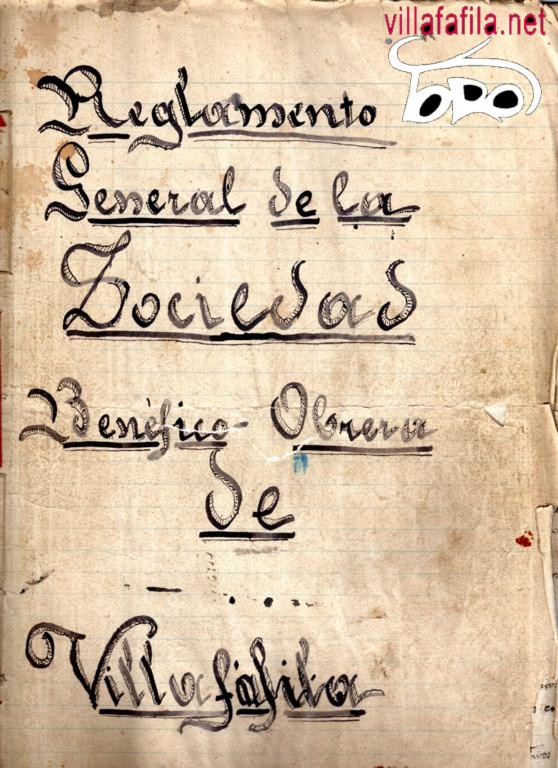 villafafila.net
TODO
Reglamento
General de la
Sociedad
Benéfico-Obrera
de
Villafáfila